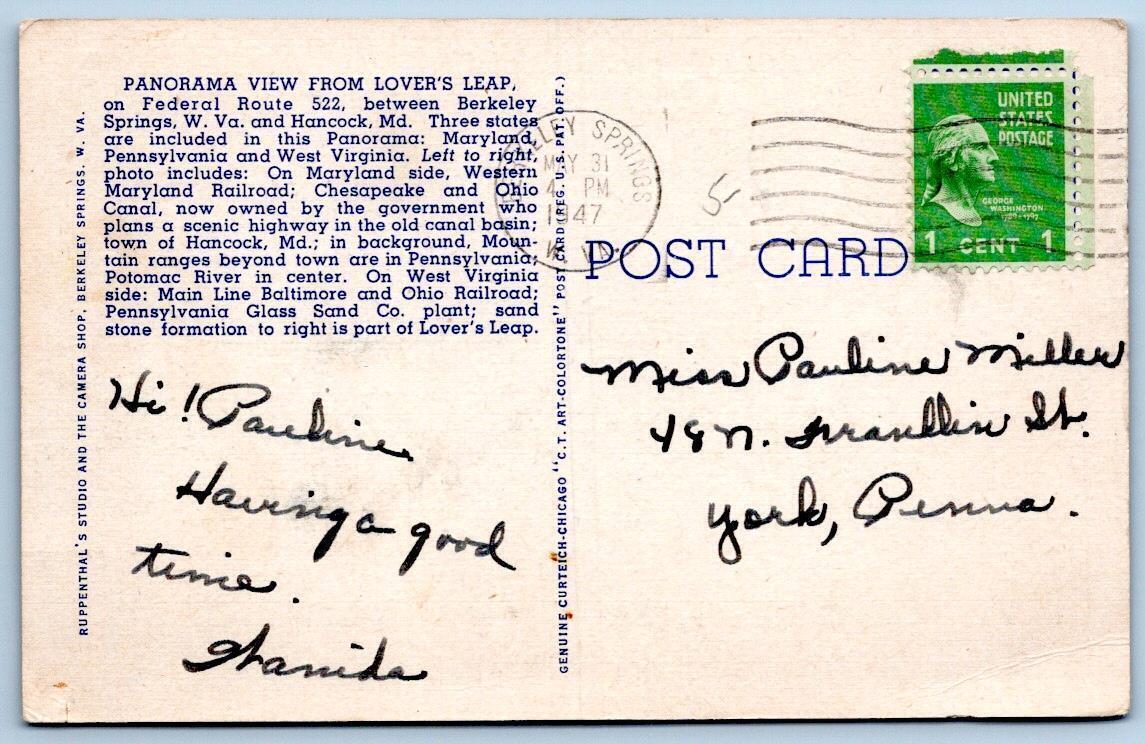 PANORAMA VIEW FROM LOVER'S LEAP,
on Federal Route 522, between Berkeley
Springs, W. Va. and Hancock, Md. Three states
are included in this Panorama: Maryland,
Pennsylvania and West Virginia. Left to right,
photo includes: On Maryland side, Western
Maryland Railroad; Chesapeake and Ohio
Canal, now owned by the government who
plans a scenic highway in the old canal basin;
town of Hancock, Md.; in background, Moun-
tain ranges beyond town are in Pennsylvania;
Potomac River in center. On West Virginia
side: Main Line Baltimore and Ohio Railroad;
Pennsylvania Glass Sand Co. plant; sand
stone formation to right is part of Lover's Leap.
RUPPENTHAL'S STUDIO AND THE CAMERA SHOP, BERKELEY SPRINGS, W. VA.
Hi! Pauline.
Having a good
time.
GENUINE CURTEICH-CHICAGO "C.T. ART-COLORTONE" POST CARD (REG. U.S. PAT. OFF.)
BERKELEY SPRINGS
MAY 31
4 PM
1947
W. VA.
5
POST CARD
UNITED
STATES
POSTAGE
GEORGE
WASHINGTON
1789-1797
1 CENT 1
Miss Pauline Miller
48 N. Franklin St.
York, Penna.